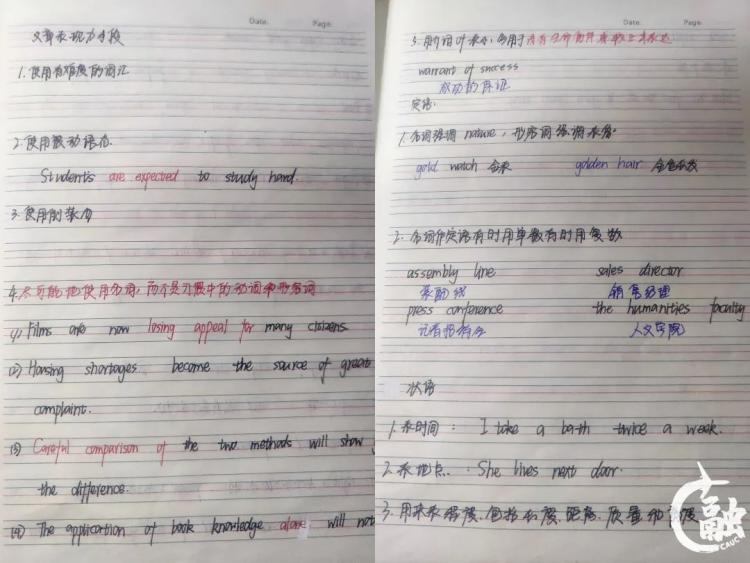 Date. Page.
文章表现力手段
1.使用有难度的词汇
2.使用被动语态.
Students are expected to study hard.
3.使用倒装句
4.尽可能地使用名词,而不是习惯中的动词和形容词
(1) Films are now losing appeal for many citizens
(2) Housing shortages become the source of great
complaint.
(3) Careful comparison of the two methods will show
the difference.
(4) The application of book knowledge alone will not
Date. Page.
warrant of success
成功的保证
定语.
1.名词强调nature,形容词强调
gold watch 金表 golden hair 金色头发
2.名词作定语有时用单数有时用复数
assembly line sales director
装配线 销售经理
press conference the humanities faculty
记者招待会 人文学院
状语
1.表时间: I take a bath twice a week.
2.表地点. She lives next door.
3.用来表程度,包括长度、距离、质量和
融
CAUC